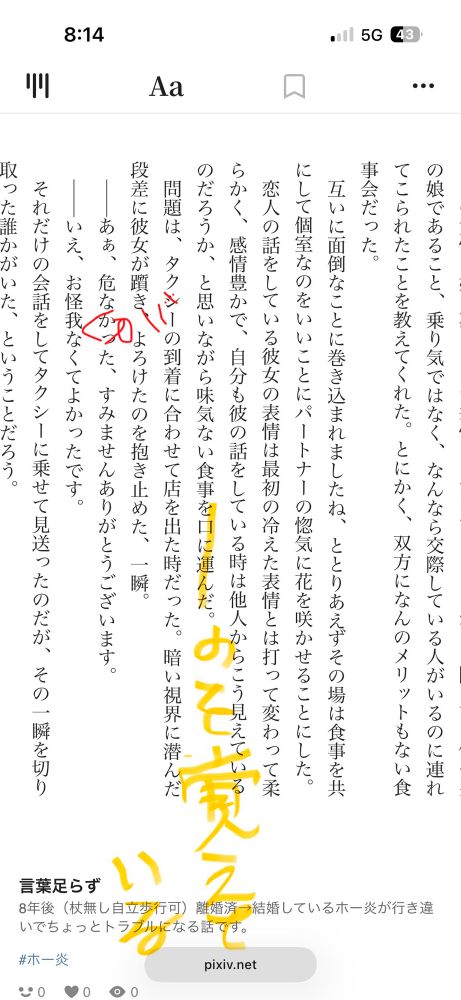 8:14
5G 43
Aa
の娘であること、乗り気ではなく、なんなら交際している人がいるのに連れ
てこられたことを教えてくれた。とにかく、双方になんのメリットもない食
事会だった。
互いに面倒なことに巻き込まれましたね、ととりあえずその場は食事を共
にして個室なのをいいことにパートナーの惚気に花を咲かせることにした。
恋人の話をしている彼女の表情は最初の冷えた表情とは打って変わって柔
らかく、感情豊かで、自分も彼の話をしている時は他人からこう見えている
のだろうか、と思いながら味気ない食事を口に運んだ。
問題は、タクシーの到着に合わせて店を出た時だった。暗い視界に潜んだ
段差に彼女が躓き、よろけたのを抱き止めた、一瞬。
――あぁ、危なかった、すみませんありがとうございます。
――いえ、お怪我なくてよかったです。
それだけの会話をしてタクシーに乗せて見送ったのだが、その一瞬を切り
取った誰かがいた、ということだろう。
のを覚えて
いる
言葉足らず
8年後（杖無し自立歩行可）離婚済→結婚しているホー炎が行き違
いでちょっとトラブルになる話です。
#ホー炎
pixiv.net
0 0 0